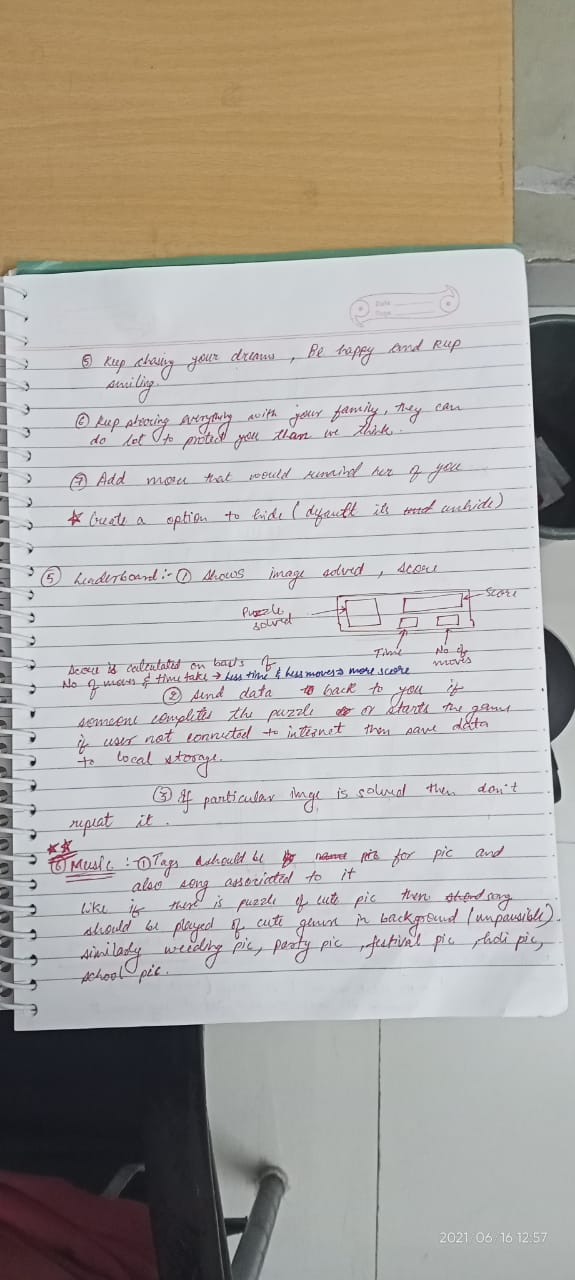 Date
Page
⑤ Keep chasing your dreams, Be happy and keep
smiling.
⑥ Keep sharing everything with your family, they can
do lot to protect you than we think.
⑦ Add more that would remind her of you
* Create a option to hide (default its unhide)
⑤ Leaderboard:- ① shows image solved, score
Puzzle
solved
Score
Time
No of
moves
Score is calculated on basis of
No of moves & time take → Less time & Less moves → more score
② send data back to you if
someone completes the puzzle or starts the game
if user not connected to internet then save data
to local storage.
③ If particular imge is solved then don't
repeat it.
⑥ Music: ① Tags should be for pic and
also song associated to it
like if there is puzzle of cute pic then song
should be played of cute genre in background (unpausible)
similarly weeding pic, party pic, festival pic, holi pic,
school pic.
2021.06.16 12:57